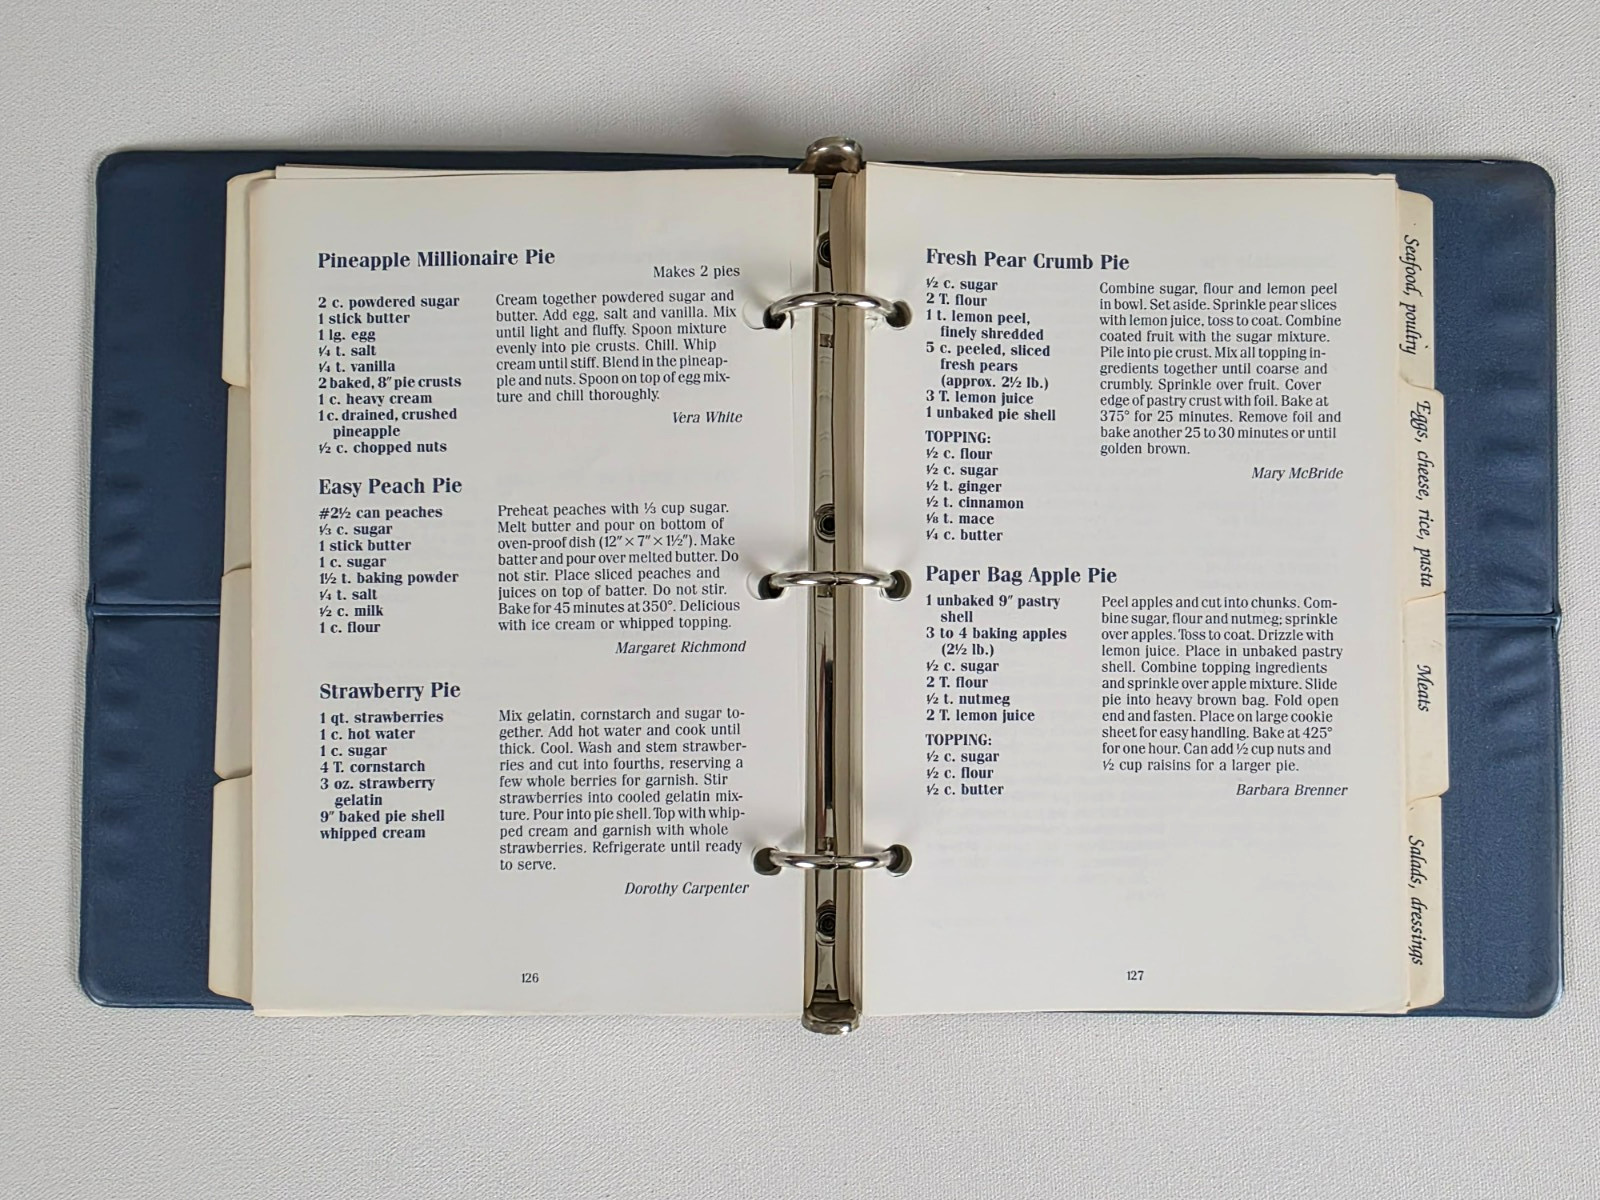 Pineapple Millionaire Pie
Makes 2 pies
2 c. powdered sugar
1 stick butter
1 lg. egg
¼ t. salt
¼ t. vanilla
2 baked, 8" pie crusts
1 c. heavy cream
1 c. drained, crushed
pineapple
½ c. chopped nuts
Cream together powdered sugar and
butter. Add egg, salt and vanilla. Mix
until light and fluffy. Spoon mixture
evenly into pie crusts. Chill. Whip
cream until stiff. Blend in the pineap-
ple and nuts. Spoon on top of egg mix-
ture and chill thoroughly.
Vera White
Easy Peach Pie
#2½ can peaches
⅓ c. sugar
1 stick butter
1 c. sugar
1½ t. baking powder
¼ t. salt
½ c. milk
1 c. flour
Preheat peaches with ⅓ cup sugar.
Melt butter and pour on bottom of
oven-proof dish (12" × 7" × 1½"). Make
batter and pour over melted butter. Do
not stir. Place sliced peaches and
juices on top of batter. Do not stir.
Bake for 45 minutes at 350°. Delicious
with ice cream or whipped topping.
Margaret Richmond
Strawberry Pie
1 qt. strawberries
1 c. hot water
1 c. sugar
4 T. cornstarch
3 oz. strawberry
gelatin
9" baked pie shell
whipped cream
Mix gelatin, cornstarch and sugar to-
gether. Add hot water and cook until
thick. Cool. Wash and stem strawber-
ries and cut into fourths, reserving a
few whole berries for garnish. Stir
strawberries into cooled gelatin mix-
ture. Pour into pie shell. Top with whip-
ped cream and garnish with whole
strawberries. Refrigerate until ready
to serve.
Dorothy Carpenter
126
Fresh Pear Crumb Pie
½ c. sugar
2 T. flour
1 t. lemon peel,
finely shredded
5 c. peeled, sliced
fresh pears
(approx. 2½ lb.)
3 T. lemon juice
1 unbaked pie shell
TOPPING:
½ c. flour
½ c. sugar
½ t. ginger
½ t. cinnamon
⅛ t. mace
¼ c. butter
Combine sugar, flour and lemon peel
in bowl. Set aside. Sprinkle pear slices
with lemon juice, toss to coat. Combine
coated fruit with the sugar mixture.
Pile into pie crust. Mix all topping in-
gredients together until coarse and
crumbly. Sprinkle over fruit. Cover
edge of pastry crust with foil. Bake at
375° for 25 minutes. Remove foil and
bake another 25 to 30 minutes or until
golden brown.
Mary McBride
Paper Bag Apple Pie
1 unbaked 9" pastry
shell
3 to 4 baking apples
(2½ lb.)
½ c. sugar
2 T. flour
½ t. nutmeg
2 T. lemon juice
TOPPING:
½ c. sugar
½ c. flour
½ c. butter
Peel apples and cut into chunks. Com-
bine sugar, flour and nutmeg; sprinkle
over apples. Toss to coat. Drizzle with
lemon juice. Place in unbaked pastry
shell. Combine topping ingredients
and sprinkle over apple mixture. Slide
pie into heavy brown bag. Fold open
end and fasten. Place on large cookie
sheet for easy handling. Bake at 425°
for one hour. Can add ½ cup nuts and
½ cup raisins for a larger pie.
Barbara Brenner
127
Seafood, poultry
Eggs, cheese, rice, pasta
Meats
Salads, dressings